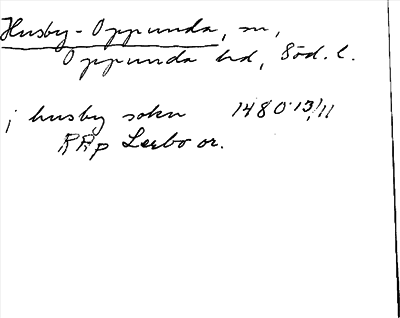 Husby-Oppunda, sn,
Oppunda hd, Söd. l.
i husby sokn 1480 13/11
RRp Leebo or.